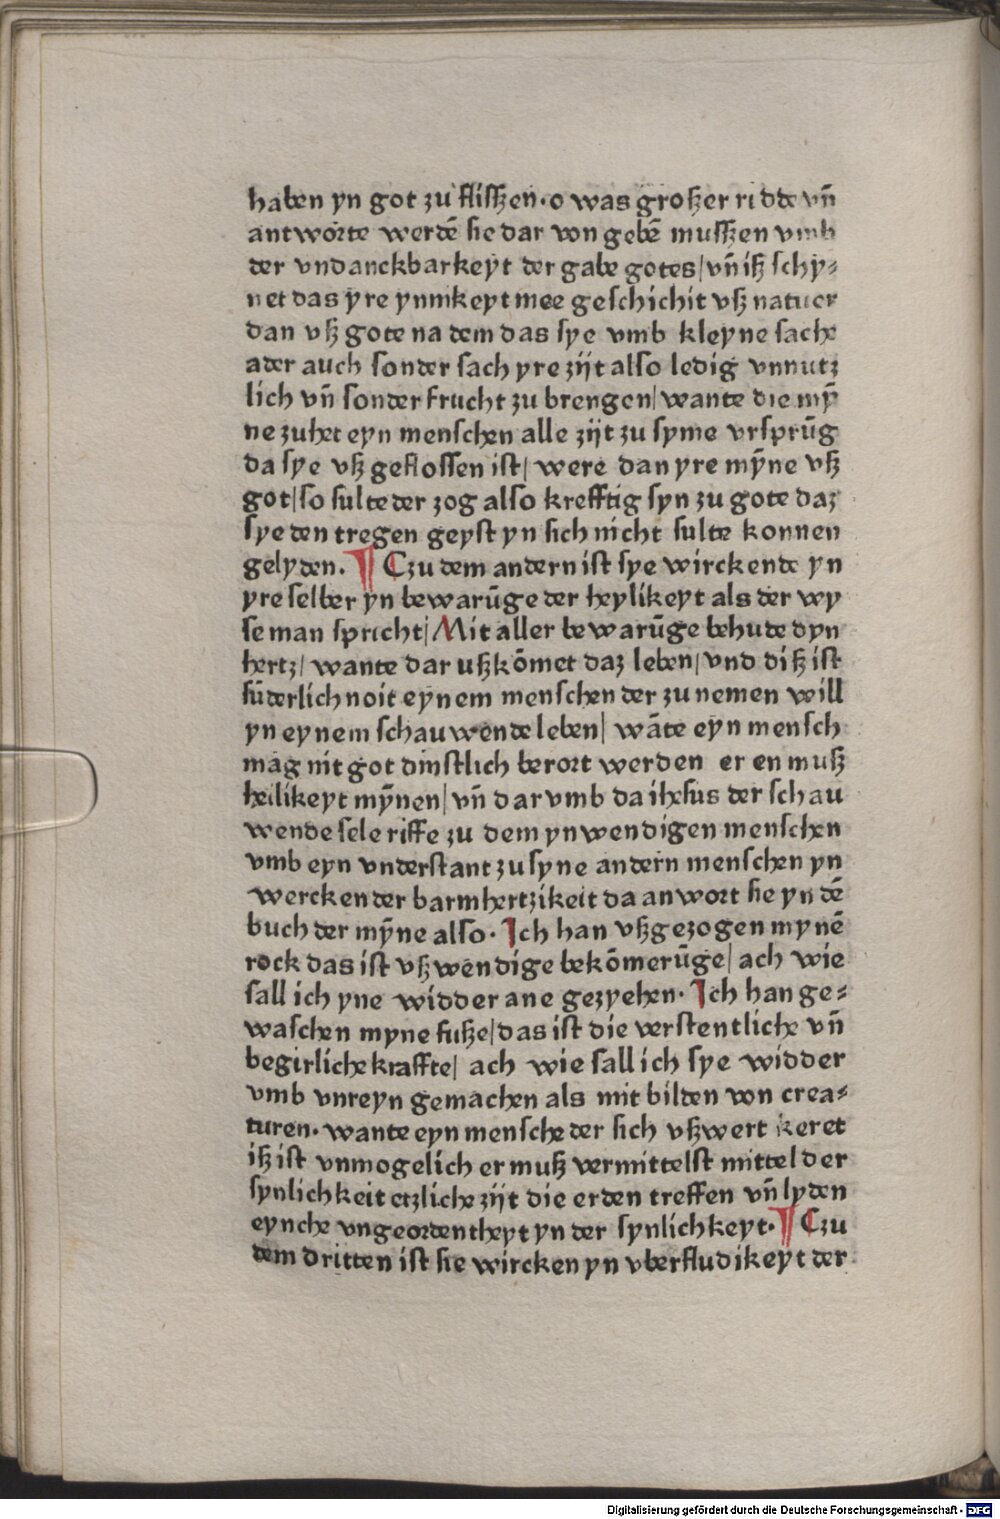 haben yn got zu flisſzen·o was groſzer ridde vn̄
antworte werdē sie dar von gebē musſzen vmb
der vndanckbarkeyt der gabe gotes/vn̄ iſz schy⸗
net das yre ynnikeyt mee geschichit vſz natuer
dan vſz gote na dem das sye vmb kleyne sache
ader auch sonder sach yre zijt also ledig vnnutz
lich vn̄ sonder frucht zu brengen/wante die mȳ
ne zuhet eyn menschen alle zijt zu syme vrsprūg
da sye vſz geflossen ist/ were dan yre mȳne vſz
got/so sulte der zog also krefftig syn zu gote daz
sye den tregen geyst yn sich nicht sulte konnen
gelyden. ¶ Czu dem andern ist sye wirckende yn
yre selber yn bewarūge der heylikeyt als der wy
se man spricht/Mit aller bewarūge behude dyn
hertz/ wante dar uſz kōmet daz leben/vnd diſz ist
sūderlich noit eynem menschen der zu nemen will
yn eynem schauwende leben/ wāte eyn mensch
mag nit got dinstlich berort werden er en muſz
heilikeyt mȳnen/vn̄ dar vmb da ihesus der schau
wende sele riffe zu dem ynwendigen menschen
vmb eyn vnderstant zu syne andern menschen yn
wercken der barmhertzikeit da anwort sie yn dē
buch der mȳne also· Ich han vſzgezogen mynē
rock das ist vſzwendige bekōmerūge/ ach wie
sall ich yne widder ane gezyehen· Ich han ge⸗
waschen myne fuſze/das ist die verstentliche vn̄
begirliche kraffte/ ach wie sall ich sye widder
vmb vnreyn gemachen als mit bilden von crea⸗
turen· wante eyn mensche der sich vſzwert keret
iſz ist vnmogelich er muſz vermittelst mittel der
synlichkeit etzliche zijt die erden treffen vn̄ lyden
eynche vngeordentheyt yn der synlichkeyt·¶ Czu
dem dritten ist sie wircken yn vberfludikeyt der
Digitalisierung gefördert durch die Deutsche Forschungsgemeinschaft - DFG